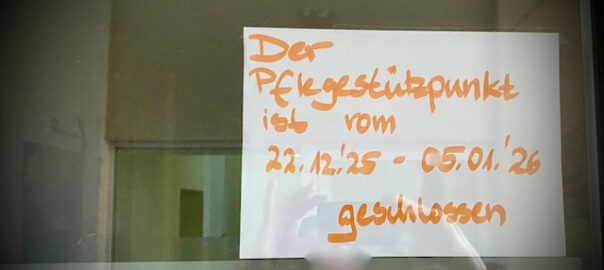 Der
Pflegestützpunkt
ist vom
22.12.'25 - 05.01.'26
geschlossen